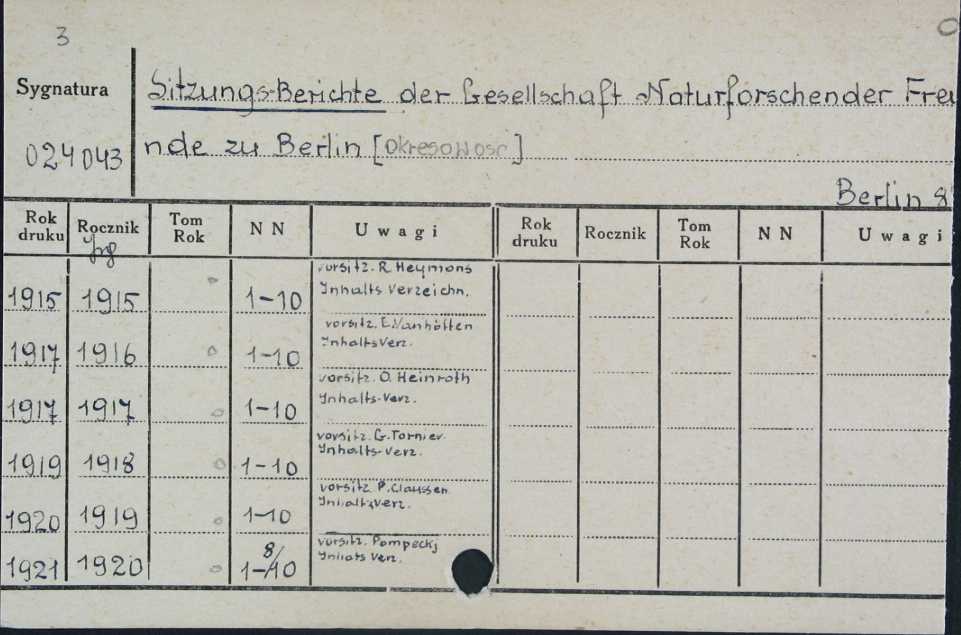 3
Sygnatura
Sitzungs-Berichte der Gesellschaft Naturforschender Freu
024043
nde zu Berlin [okresowość]
Berlin 8
Rok druku Rocznik Tom Rok N N Uwagi Rok druku Rocznik Tom Rok N N Uwagi
Jrg
vorsitz. R. Heymons
1915 1915 1-10 Inhalts Verzeichn.
vorsitz. E. Vanhöffen
1917 1916 1-10 InhaltsVerz.
vorsitz. O. Heinroth
1917 1917 1-10 Inhalts-Verz.
vorsitz. G. Tornier
1919 1918 1-10 Inhalts-verz.
vorsitz P. Claussen
1920 1919 1-10 Inhaltsverz.
vorsitz. Pompeckj
1921 1920 1-8/10 Inhalts Verz.